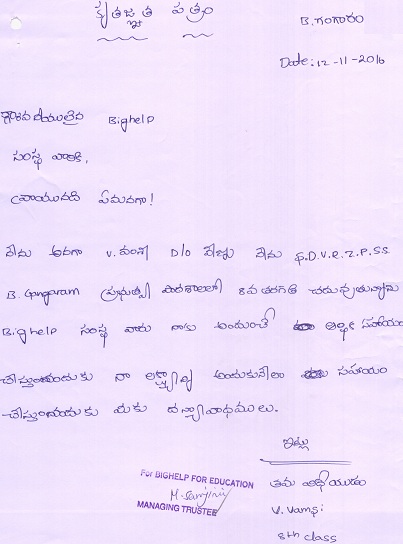 కృతజ్ఞత పత్రం
B. గంగారం
Date: 12-11-2016
గౌరవనీయులైన Bighelp
సంస్థ వారికి,
వ్రాయునది ఏమనగా!
నేను అనగా V. వంశీ D/o నేను F.D.V.R.Z.P.S.S
B. Gangaram ప్రభుత్వ పాఠశాలలో 8వ తరగతి చదువుతున్నాను
Bighelp సంస్థ వారు నాకు అందించే ఆర్థిక సహాయం
చేస్తున్నందుకు నా లక్ష్యాన్ని అందుకునేలా సహాయం
చేస్తున్నందుకు మీకు ధన్యావాధములు.
ఇట్లు
తమ విధేయుడు
V. Vamsi
8th class
For BIGHELP FOR EDUCATION
MANAGING TRUSTEE